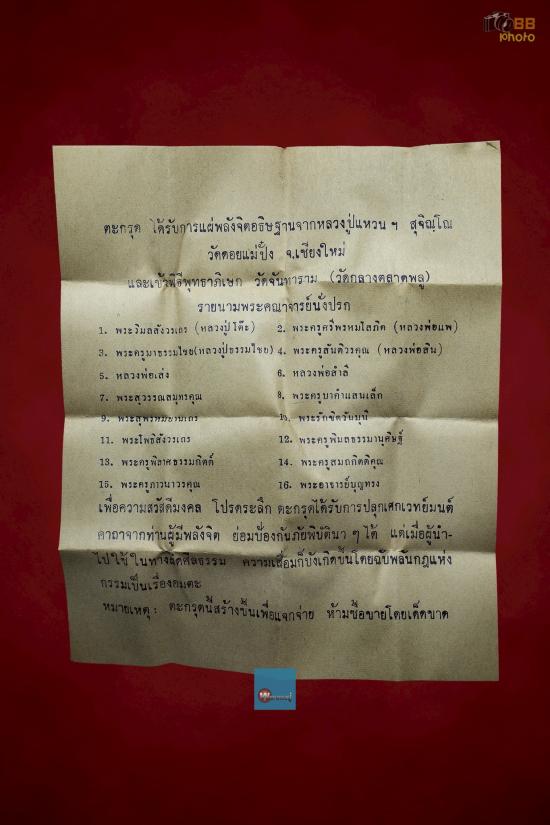 BB
photo
ตะกรุด ได้รับการแผ่พลังจิตอธิษฐานจากหลวงปู่แหวน ฯ สุจิณฺโณ
วัดดอยแม่ปั๋ง จ.เชียงใหม่
และเข้าพิธีพุทธาภิเษก วัดจันทาราม (วัดกลางตลาดพลู)
รายนามพระคณาจารย์นั่งปรก
1. พระวิมลสังวรเถร (หลวงปู่โต๊ะ) 2. พระครูศรีพรหมโสภิต (หลวงพ่อแพ)
3. พระครูบาธรรมไชย(หลวงปู่ธรรมไชย) 4. พระครูสันติวรคุณ (หลวงพ่อสิน)
5. หลวงพ่อเส่ง 6. หลวงพ่อสำลี
7. พระสุวรรณสมุทรคุณ 8. พระครูบาคำแสนเล็ก
9. 10. พระรักขิตวันมุนี
11. พระโพธิสังวรเถร 12. พระครูพิมลธรรมานุศิษฐ์
13. พระครูพิลาศธรรมกิตติ์ 14. พระครูสมถกิตติคุณ
15. พระครูภาวนาวรคุณ 16. พระอาจารย์บุญทรง
เพื่อความสวัสดีมงคล โปรดระลึก ตะกรุดได้รับการปลุกเศกเวทย์มนต์
คาถาจากท่านผู้มีพลังจิต ย่อมป้องกันภัยพิบัตินา ๆ ได้ แต่เมื่อผู้นำ-
ไปใช้ในทางผิดศีลธรรม ความเสื่อมก็บังเกิดขึ้นโดยฉับพลันกฎแห่ง
กรรมเป็นเรื่องอมตะ
หมายเหตุ : ตะกรุดนี้สร้างขึ้นเพื่อแจกจ่าย ห้ามซื้อขายโดยเด็ดขาด